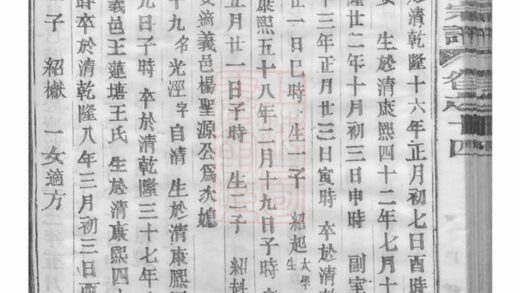 宗譜 卷之十四
於清乾隆十六年正月初七日酉時
生於清康熙四十二年七月十
隆廿二年十月初三日申時 副室
十三年正月廿三日寅時 卒於清
廿一日巳時 生一子 紹起 大學生
康熙五十八年二月十九日子時
正月廿一日子時 生二子 紹科
女適義邑楊聖源公為次媳
十九名光涇字自清 生於清康熙
元日子時 卒於清乾隆三十七年
義邑王蓮塘王氏 生於清康熙四
時卒於清乾隆八年三月初三日酉
子 紹嶽 一女適方